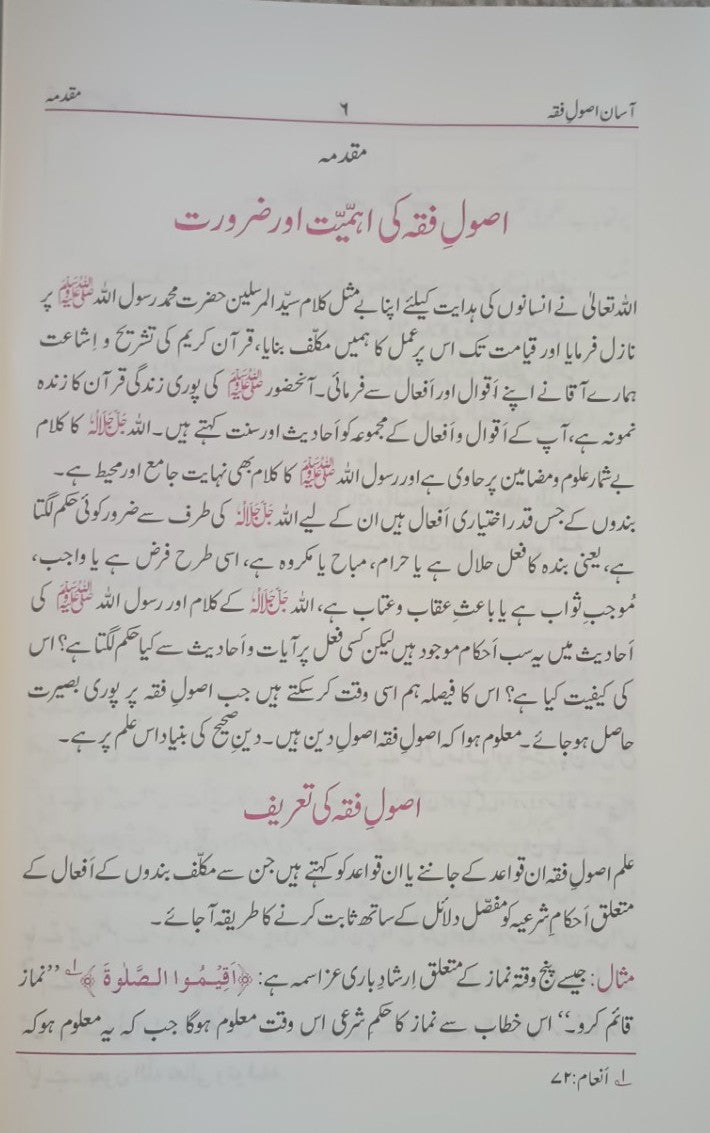 آسان اصولِ فقہ ۶ مقدمہ
مقدمہ
اصولِ فقہ کی اہمیّت اور ضرورت
اللہ تعالیٰ نے انسانوں کی ہدایت کیلئے اپنا بے مثل کلام سیّد المرسلین حضرت محمد رسول اللہ ﷺ پر
نازل فرمایا اور قیامت تک اس پر عمل کا ہمیں مکلّف بنایا، قرآن کریم کی تشریح و اِشاعت
ہمارے آقا نے اپنے اَقوال اور اَفعال سے فرمائی۔ آنحضور ﷺ کی پوری زندگی قرآن کا زندہ
نمونہ ہے، آپ کے اَقوال و اَفعال کے مجموعہ کو اَحادیث اور سنت کہتے ہیں۔ اللہ جَلَّ جَلَالُہٗ کا کلام
بے شمار علوم و مضامین پر حاوی ہے اور رسول اللہ ﷺ کا کلام بھی نہایت جامع اور محیط ہے۔
بندوں کے جس قدر اختیاری اَفعال ہیں ان کے لیے اللہ جَلَّ جَلَالُہٗ کی طرف سے ضرور کوئی حکم لگتا
ہے، یعنی بندہ کا فعل حلال ہے یا حرام، مباح یا مکروہ ہے، اسی طرح فرض ہے یا واجب،
مُوجبِ ثواب ہے یا باعثِ عقاب و عتاب ہے، اللہ جَلَّ جَلَالُہٗ کے کلام اور رسول اللہ ﷺ کی
اَحادیث میں یہ سب اَحکام موجود ہیں لیکن کسی فعل پر آیات و اَحادیث سے کیا حکم لگتا ہے؟ اس
کی کیفیت کیا ہے؟ اس کا فیصلہ ہم اسی وقت کرسکتے ہیں جب اصولِ فقہ پر پوری بصیرت
حاصل ہوجائے۔ معلوم ہوا کہ اصولِ فقہ اصولِ دین ہیں۔ دینِ صحیح کی بنیاد اس علم پر ہے۔
اصولِ فقہ کی تعریف
علم اصولِ فقہ ان قواعد کے جاننے یا ان قواعد کو کہتے ہیں جن سے مکلّف بندوں کے اَفعال کے
متعلق اَحکامِ شرعیہ کو مفصّل دلائل کے ساتھ ثابت کرنے کا طریقہ آجائے۔
مثال: جیسے پنج وقتہ نماز کے متعلق اِرشادِ باری عزاسمہ ہے: ﴿اَقِيْمُوا الصَّلٰوةَ﴾ ۱؎ ’’نماز
قائم کرو۔‘‘ اس خطاب سے نماز کا حکمِ شرعی اس وقت معلوم ہوگا جب کہ یہ معلوم ہو کہ
۱؎ اَنعام: ۷۲